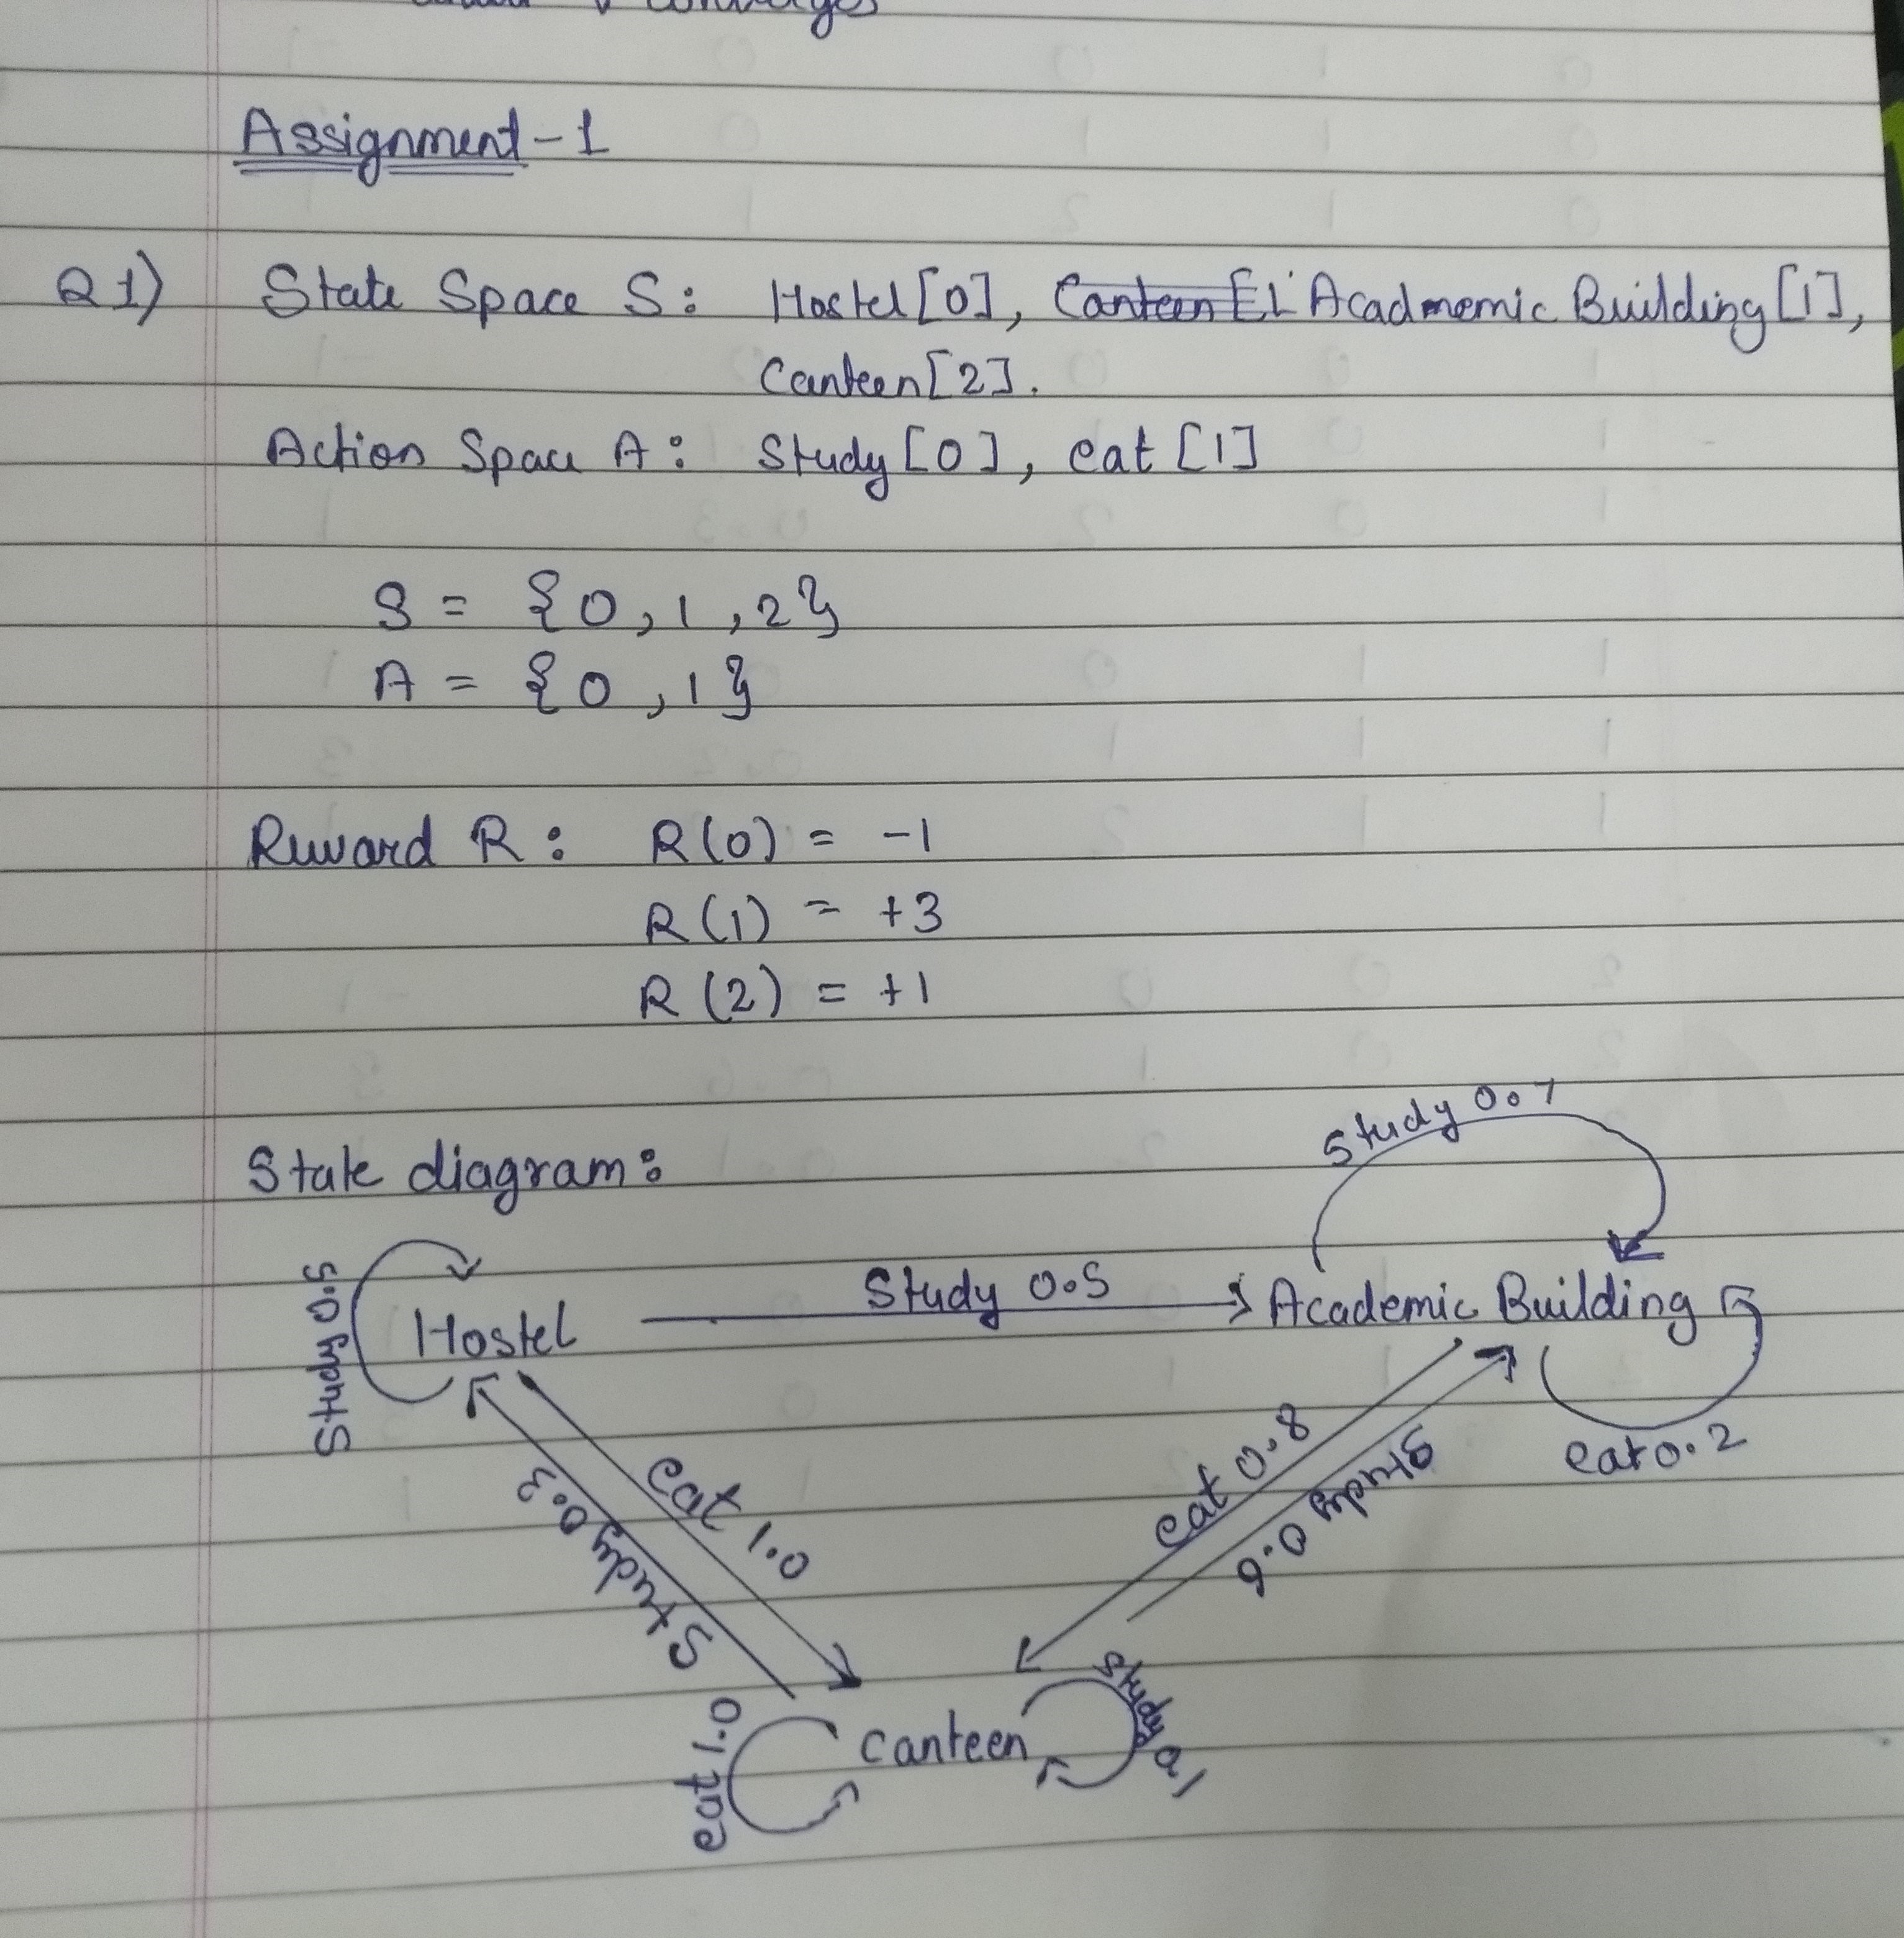 V converges
Assignment-1
Q1) State Space S: Hostel[0], Canteen[1 Acadmemic Building[1],
Canteen[2].
Action Space A: Study[0], eat [1]
S = {0,1,2}
A = {0,1}
Reward R: R(0) = -1
R(1) = +3
R(2) = +1
State diagram:
Study 0.7
Study 0.5
Hostel
Study 0.5
Academic Building
eat 0.2
Study 0.3
eat 1.0
eat 0.8
Study 0.6
eat 1.0
Canteen
Study 0.1